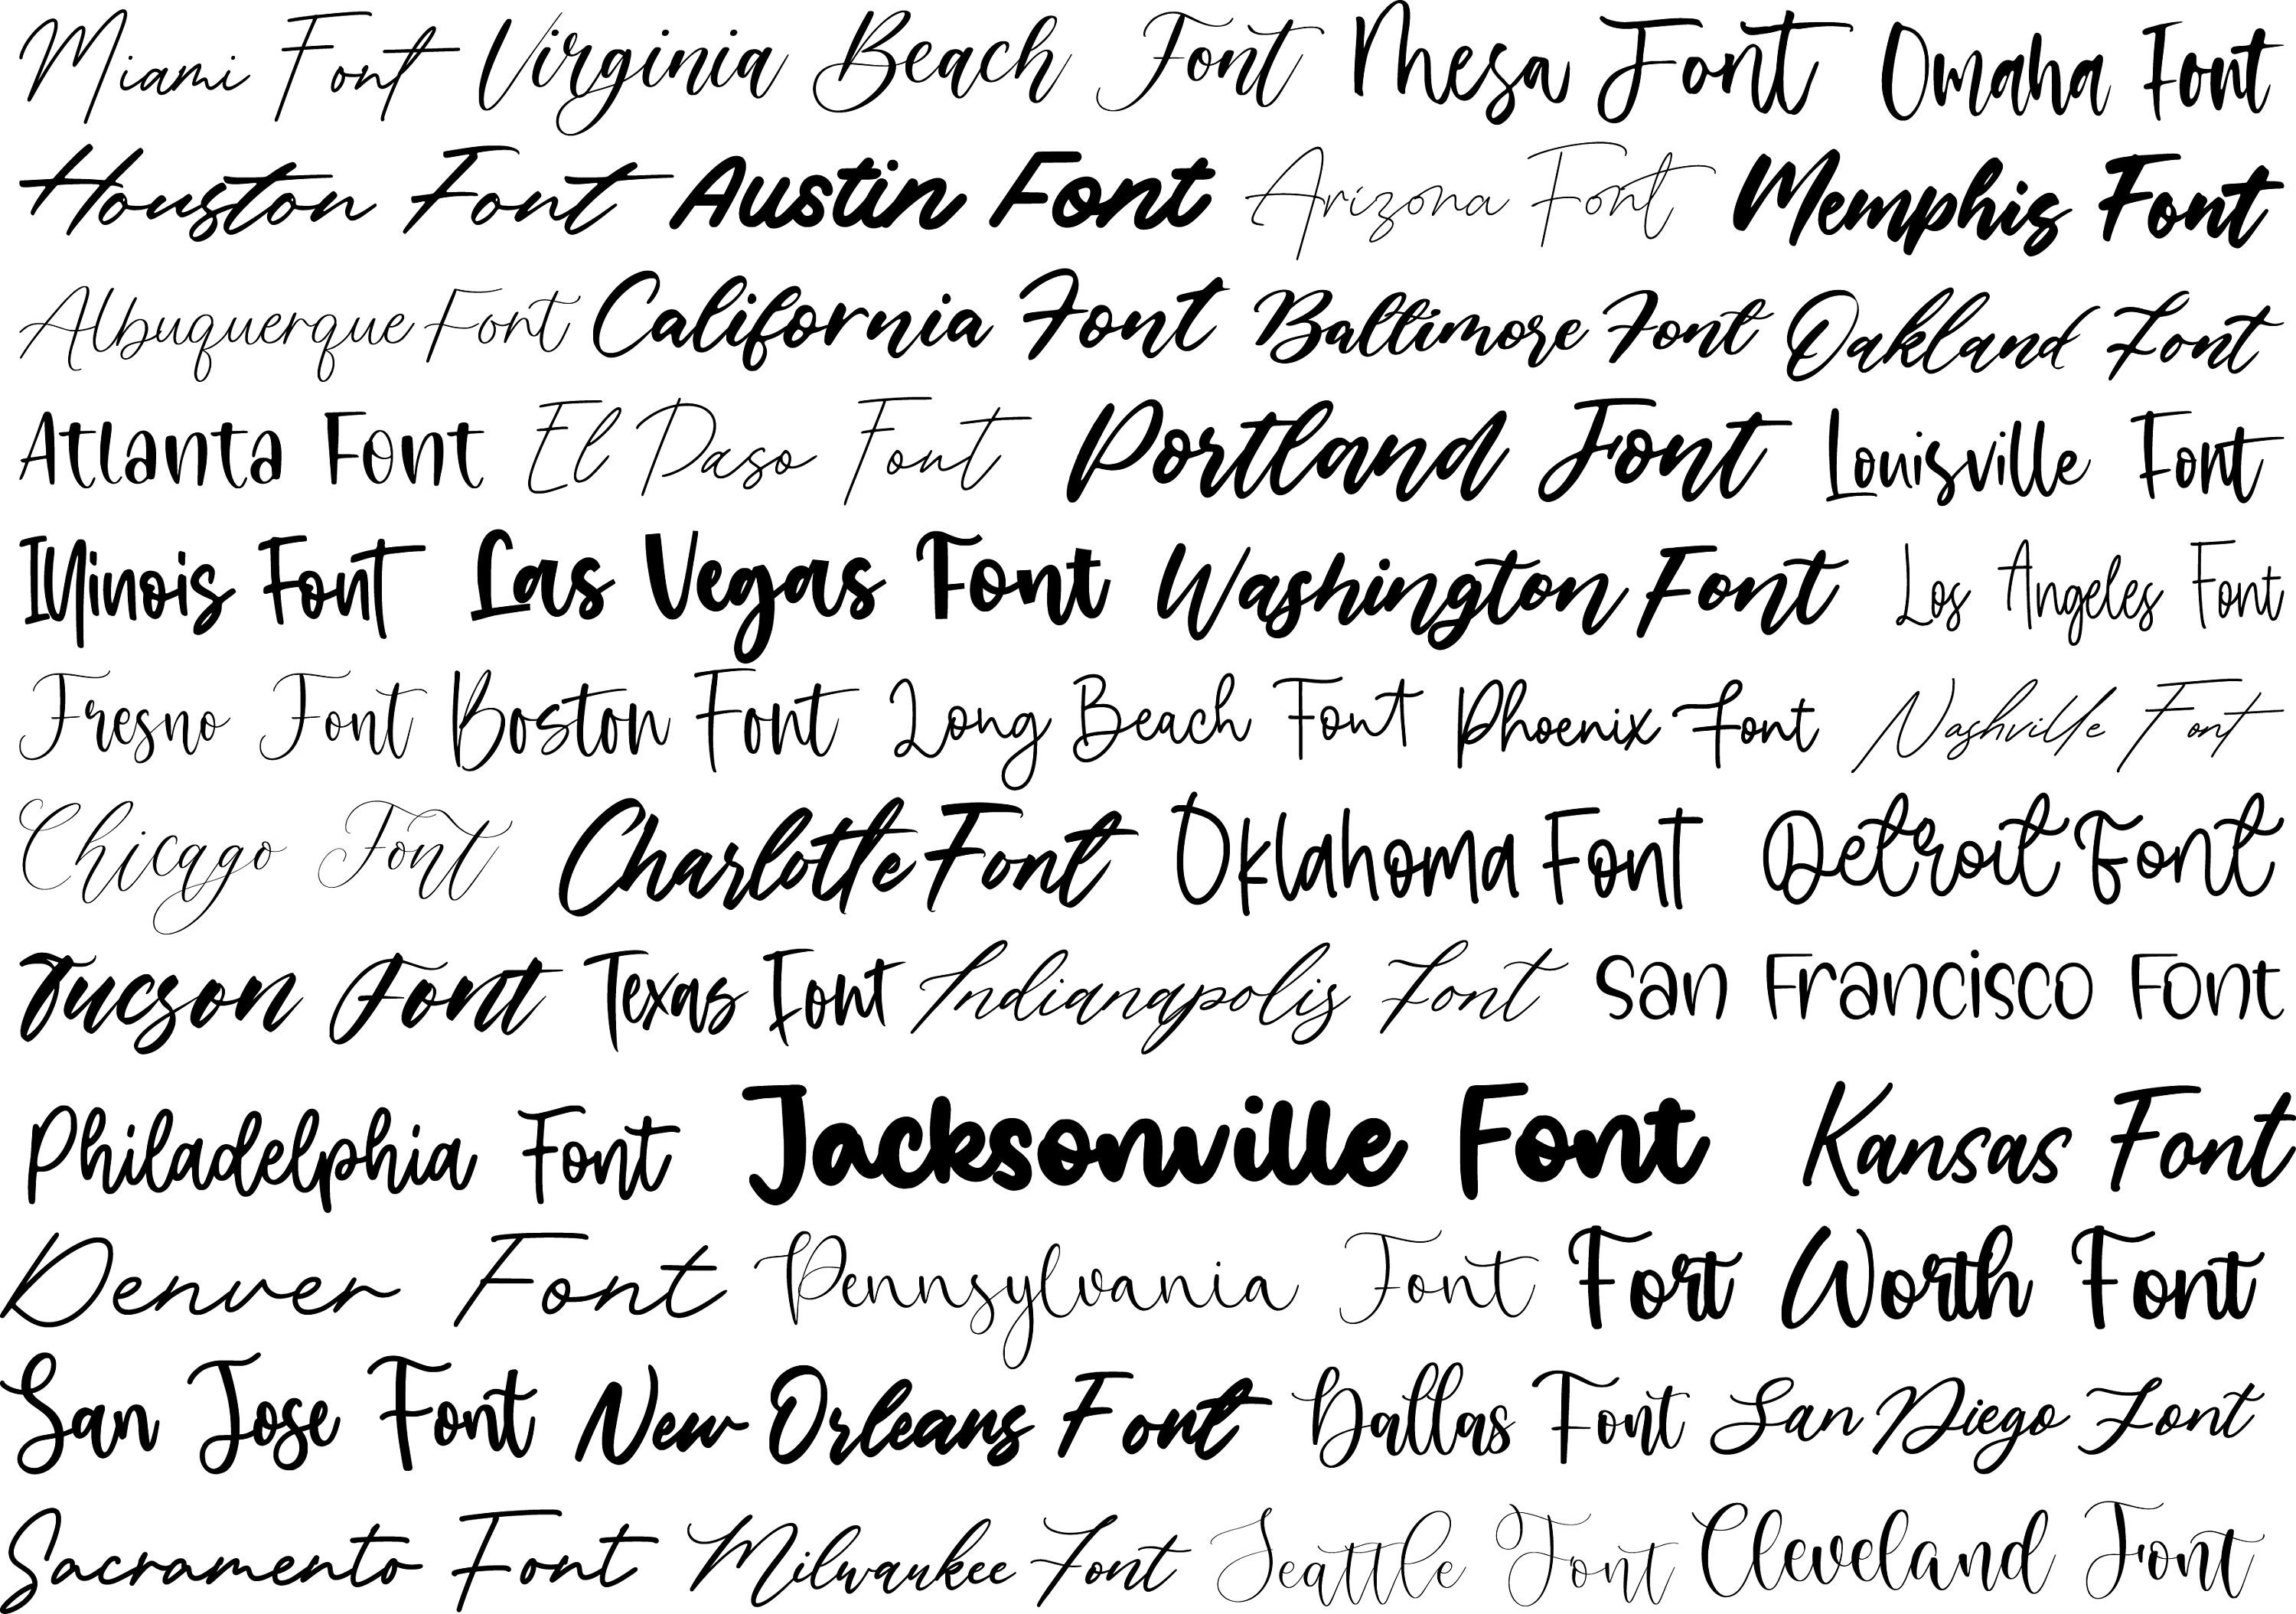 Miami Font Virginia Beach Font Mesa Font Omaha Font
Houston Font Austin Font Arizona Font Memphis Font
Albuquerque Font California Font Baltimore Font Oakland Font
Atlanta Font El Paso Font Portland Font Louisville Font
Illinois Font Las Vegas Font Washington Font Los Angeles Font
Fresno Font Boston Font Long Beach Font Phoenix Font Nashville Font
Chicago Font Charlotte Font Oklahoma Font Detroit Font
Tucson Font Texas Font Indianapolis Font San Francisco Font
Philadelphia Font Jacksonville Font Kansas Font
Denver Font Pennsylvania Font Fort Worth Font
San Jose Font New Orleans Font Dallas Font San Diego Font
Sacramento Font Milwaukee Font Seattle Font Cleveland Font